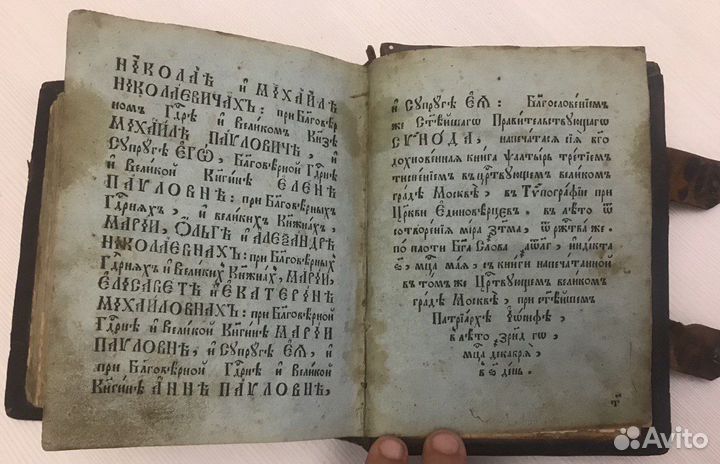 НІКОЛАѢ и҆ МІХАИЛѢ
НІКОЛАЕВИЧАХЪ: при Благовѣр
номъ Гдⷭ҇рѣ и҆ Великомъ Кн҃зѣ
МІХАИЛѢ ПАVЛОВИЧѢ, и҆
Супругѣ ЕГѠ̀, Благовѣрной Гдⷭ҇рнѣ
и҆ Великой Кн҃гинѣ ЕЛЕНѢ
ПАVЛОВНѢ: при Благовѣрныхъ
Гдⷭ҇рняхъ, и҆ великихъ Кн҃жнахъ,
МАРІИ, ОЛЬГѢ и҆ АЛЕѮАНДРѢ
НІКОЛАЕВНАХЪ: при Благовѣрныхъ
Гдⷭ҇рняхъ и҆ Великихъ Кн҃жнахъ, МАРІИ,
ЕЛІСАВЕТѢ и҆ ЕКАТЕРІНѢ
МІХАИЛОВНАХЪ: при Благовѣрной
Гдⷭ҇рнѣ и҆ Великой Кн҃гинѣ МАРІИ
ПАVЛОВНѢ, и҆ Супругѣ ЕѦ̀, и҆
при Благовѣрной Гдⷭ҇рнѣ и҆ Великой
Кн҃гинѣ АННѢ ПАVЛОВНѢ,
и҆ Супругѣ ЕѦ̀: Благословеніемъ
же Ст҃ѣйшагѡ Правительствующагѡ
СѴНОДА, напечатася сїѧ бг҃о
дохновенная книга ѱалтырь третїемъ
тисненїемъ въ црⷭ҇твующемъ великомъ
градѣ Москвѣ, въ Тѵпографїи при
Церкви Единовѣрцевъ. въ лѣто ѿ
сотворенїя міра ҂зтма, ѿ ржⷭ҇тва же
по плоти Бг҃а Слова ҂аѡлг, індікта
мцⷭ҇а маїѧ, съ книги напечатанной
въ томже црⷭ҇твующемъ великомъ
градѣ Москвѣ, при ст҃ѣйшемъ
Патріархѣ Іѡсифѣ,
в лѣто ҂зрнд гѡ,
мцⷭ҇а декабрѧ,
в день.
Avito